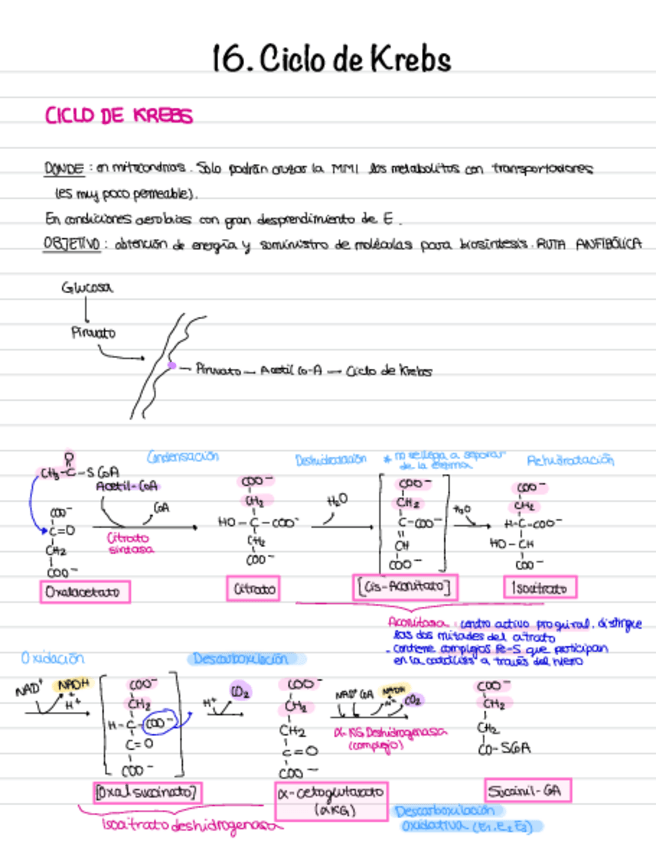 16. Ciclo de Krebs
CICLO DE KREBS
DONDE : en mitocondrias. Solo podrán cruzar la MMI los metabolitos con transportadores
(es muy poco permeable).
En condiciones aerobias con gran desprendimiento de E.
OBJETIVO : obtención de energía y suministro de moléculas para biosíntesis. RUTA ANFIBÓLICA
Glucosa
Piruvato
Piruvato — Acetil Co-A — Ciclo de Krebs
Condensación
Deshidratación
* no se llega a separar
de la enzima
Rehidratación
O
CH₃-C-S CoA
Acetil-CoA
CoA
Citrato
sintasa
COO⁻
C=O
CH₂
COO⁻
Oxalacetato
COO⁻
CH₂
HO-C-COO⁻
CH₂
COO⁻
Citrato
H₂O
COO⁻
CH₂
C-COO⁻
CH
COO⁻
[Cis-Aconitato]
H₂O
COO⁻
CH₂
H-C-COO⁻
HO-CH
COO⁻
Isocitrato
Aconitasa : centro activo proquiral. distingue
las dos mitades del citrato
- contiene complejos Fe-S que participan
en la catálisis a través del hierro
Oxidación
Descarboxilación
NAD⁺ NADH
H⁺
COO⁻
CH₂
H-C-COO⁻
C=O
COO⁻
[Oxalsuccinato]
H⁺ CO₂
COO⁻
CH₂
CH₂
C=O
COO⁻
α-cetoglutarato
(αKG)
Isocitrato deshidrogenasa
NAD⁺ CoA NADH
H⁺ CO₂
α-KG Deshidrogenasa
(complejo)
COO⁻
CH₂
CH₂
CO-SCoA
Succinil-CoA
Descarboxilación
oxidativa (E₁, E₂ E₃)